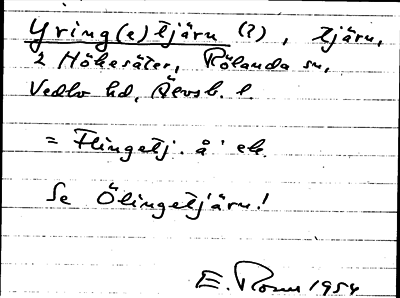 Yring(e)tjärn (?), tjärn,
2 Hökesäter, Rölanda sn,
Vedbo hd, Älvsb. l.
= Flingetj. å ek.
Se Ölingetjärn!
E. Rosen 1954